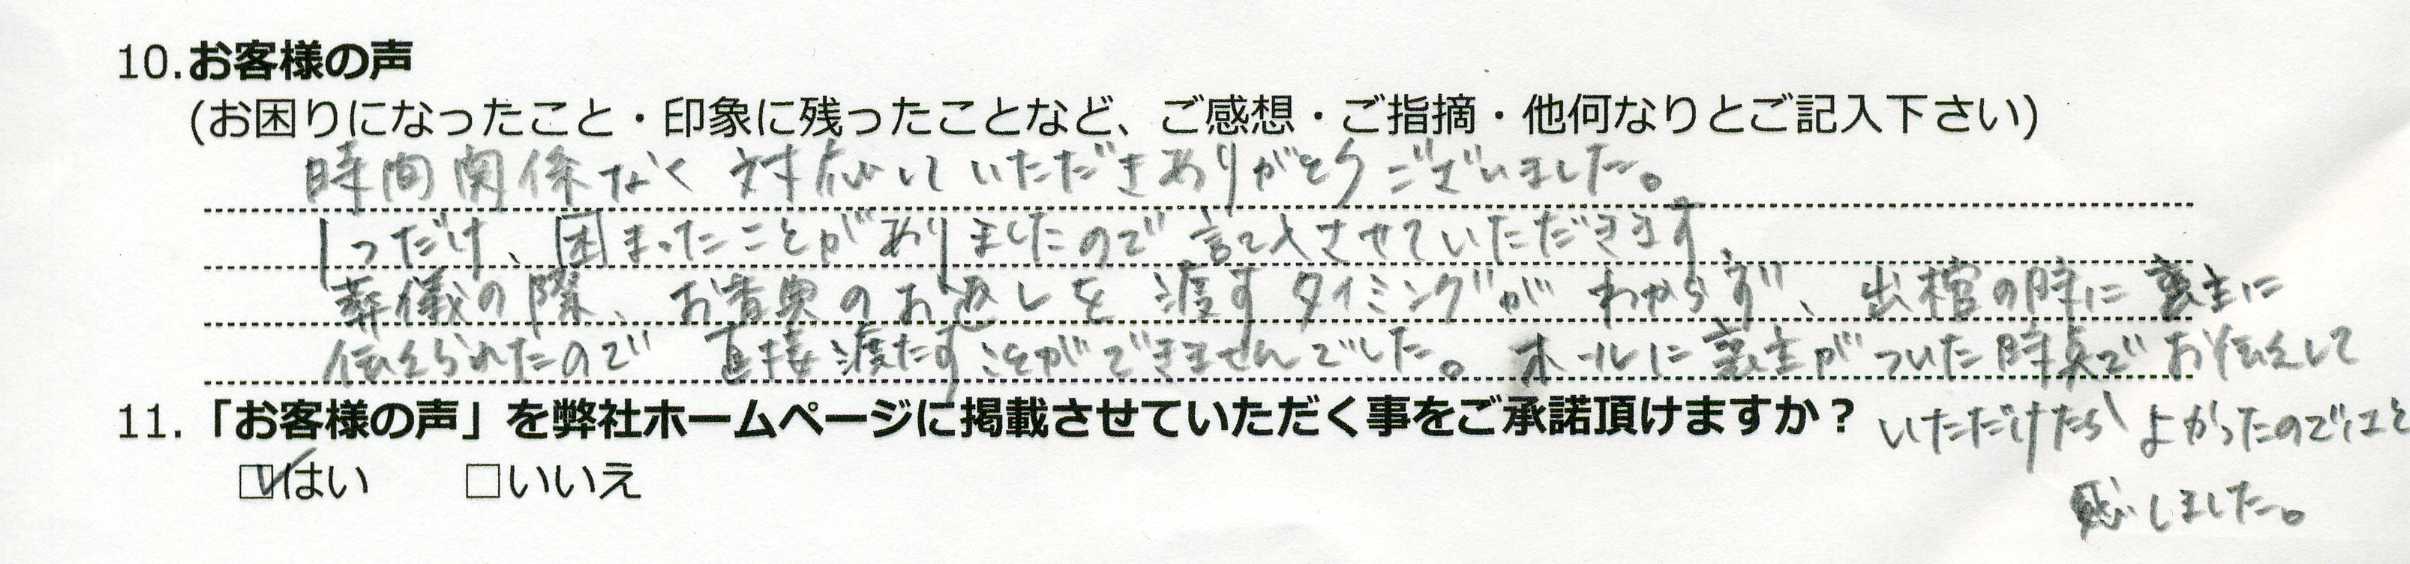 10.お客様の声
(お困りになったこと・印象に残ったことなど、ご感想・ご指摘・他何なりとご記入下さい)
時間関係なく対応していただきありがとうございました。
1つだけ、困まったことがありましたので記入させていただきます。
葬儀の際、お香典のお返しを渡すタイミングがわからず、出棺の時に喪主に
伝えられたので直接渡たすことができませんでした。ホールに喪主がついた時点でお伝えして
いただけたらよかったのではと
感しました。
11.「お客様の声」を弊社ホームページに掲載させていただく事をご承諾頂けますか？
☑はい □いいえ